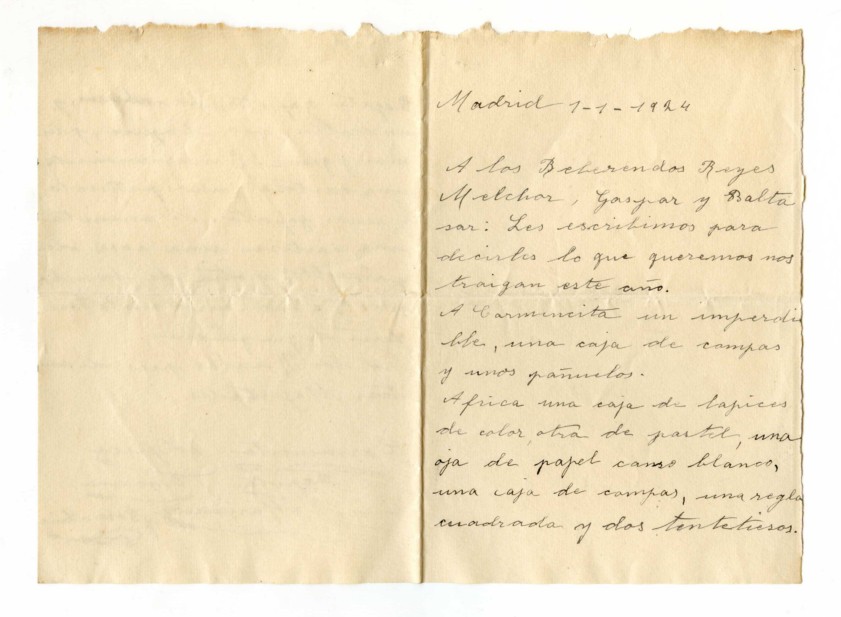 Madrid 1-1-1924
A los Beberendos Reyes
Melchor, Gaspar y Balta
sar: Les escribimos para
decirles lo que queremos nos
traigan este año.
A Carmencita un imperdi
ble, una caja de compas
y unos pañuelos.
Africa una caja de lapices
de color, otra de pastel, una
oja de papel canso blanco,
una caja de compas, una regla
cuadrada y dos tentetiesos.